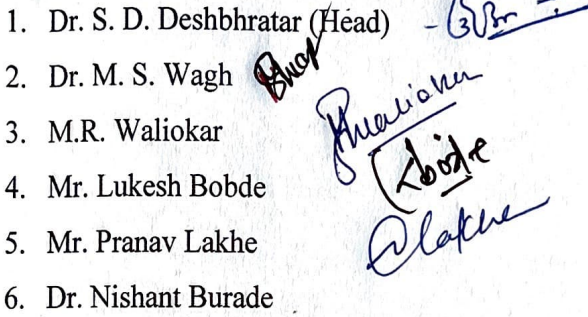 1. Dr. S. D. Deshbhratar (Head)
2. Dr. M. S. Wagh
3. M.R. Waliokar
4. Mr. Lukesh Bobde
5. Mr. Pranav Lakhe
6. Dr. Nishant Burade